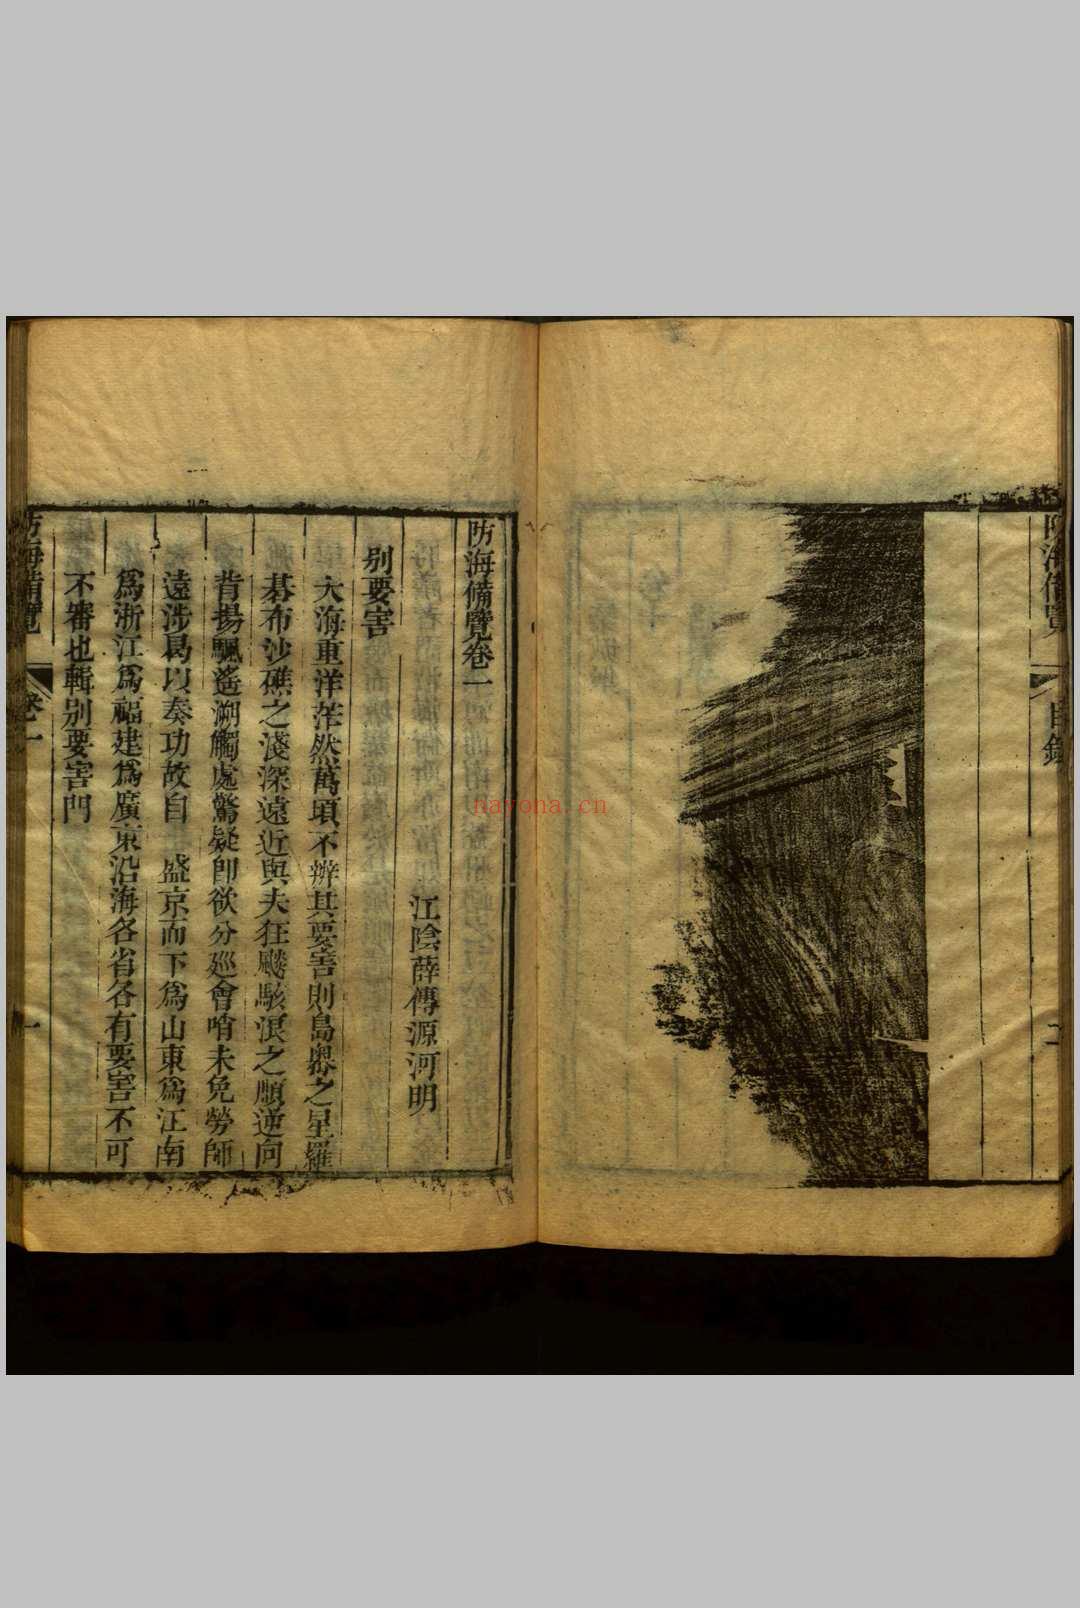 防海備覽
目錄
防海備覽卷一
江陰薛傳源河明
別要害
大海重洋茫然萬頃不辨其要害則島嶴之星羅
棊布沙礁之淺深遠近與夫狂颷駭溟之順逆向
背揚颿遙溯觸處驚疑卽欲分廵會哨未免勞師
遠涉曷以奏功故自 盛京而下爲山東爲江南
爲浙江爲福建爲廣東沿海各省各有要害不可
不審也輯別要害門
防海備覽
卷一
一
nayona.cn